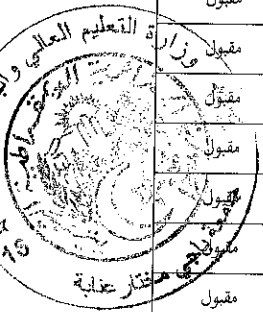 مقبول
مقبول
مقبول
مقبول
مقبول
مقبول
مقبول
وزارة التعليم العالي و
جامعة باجي مختار عنابة